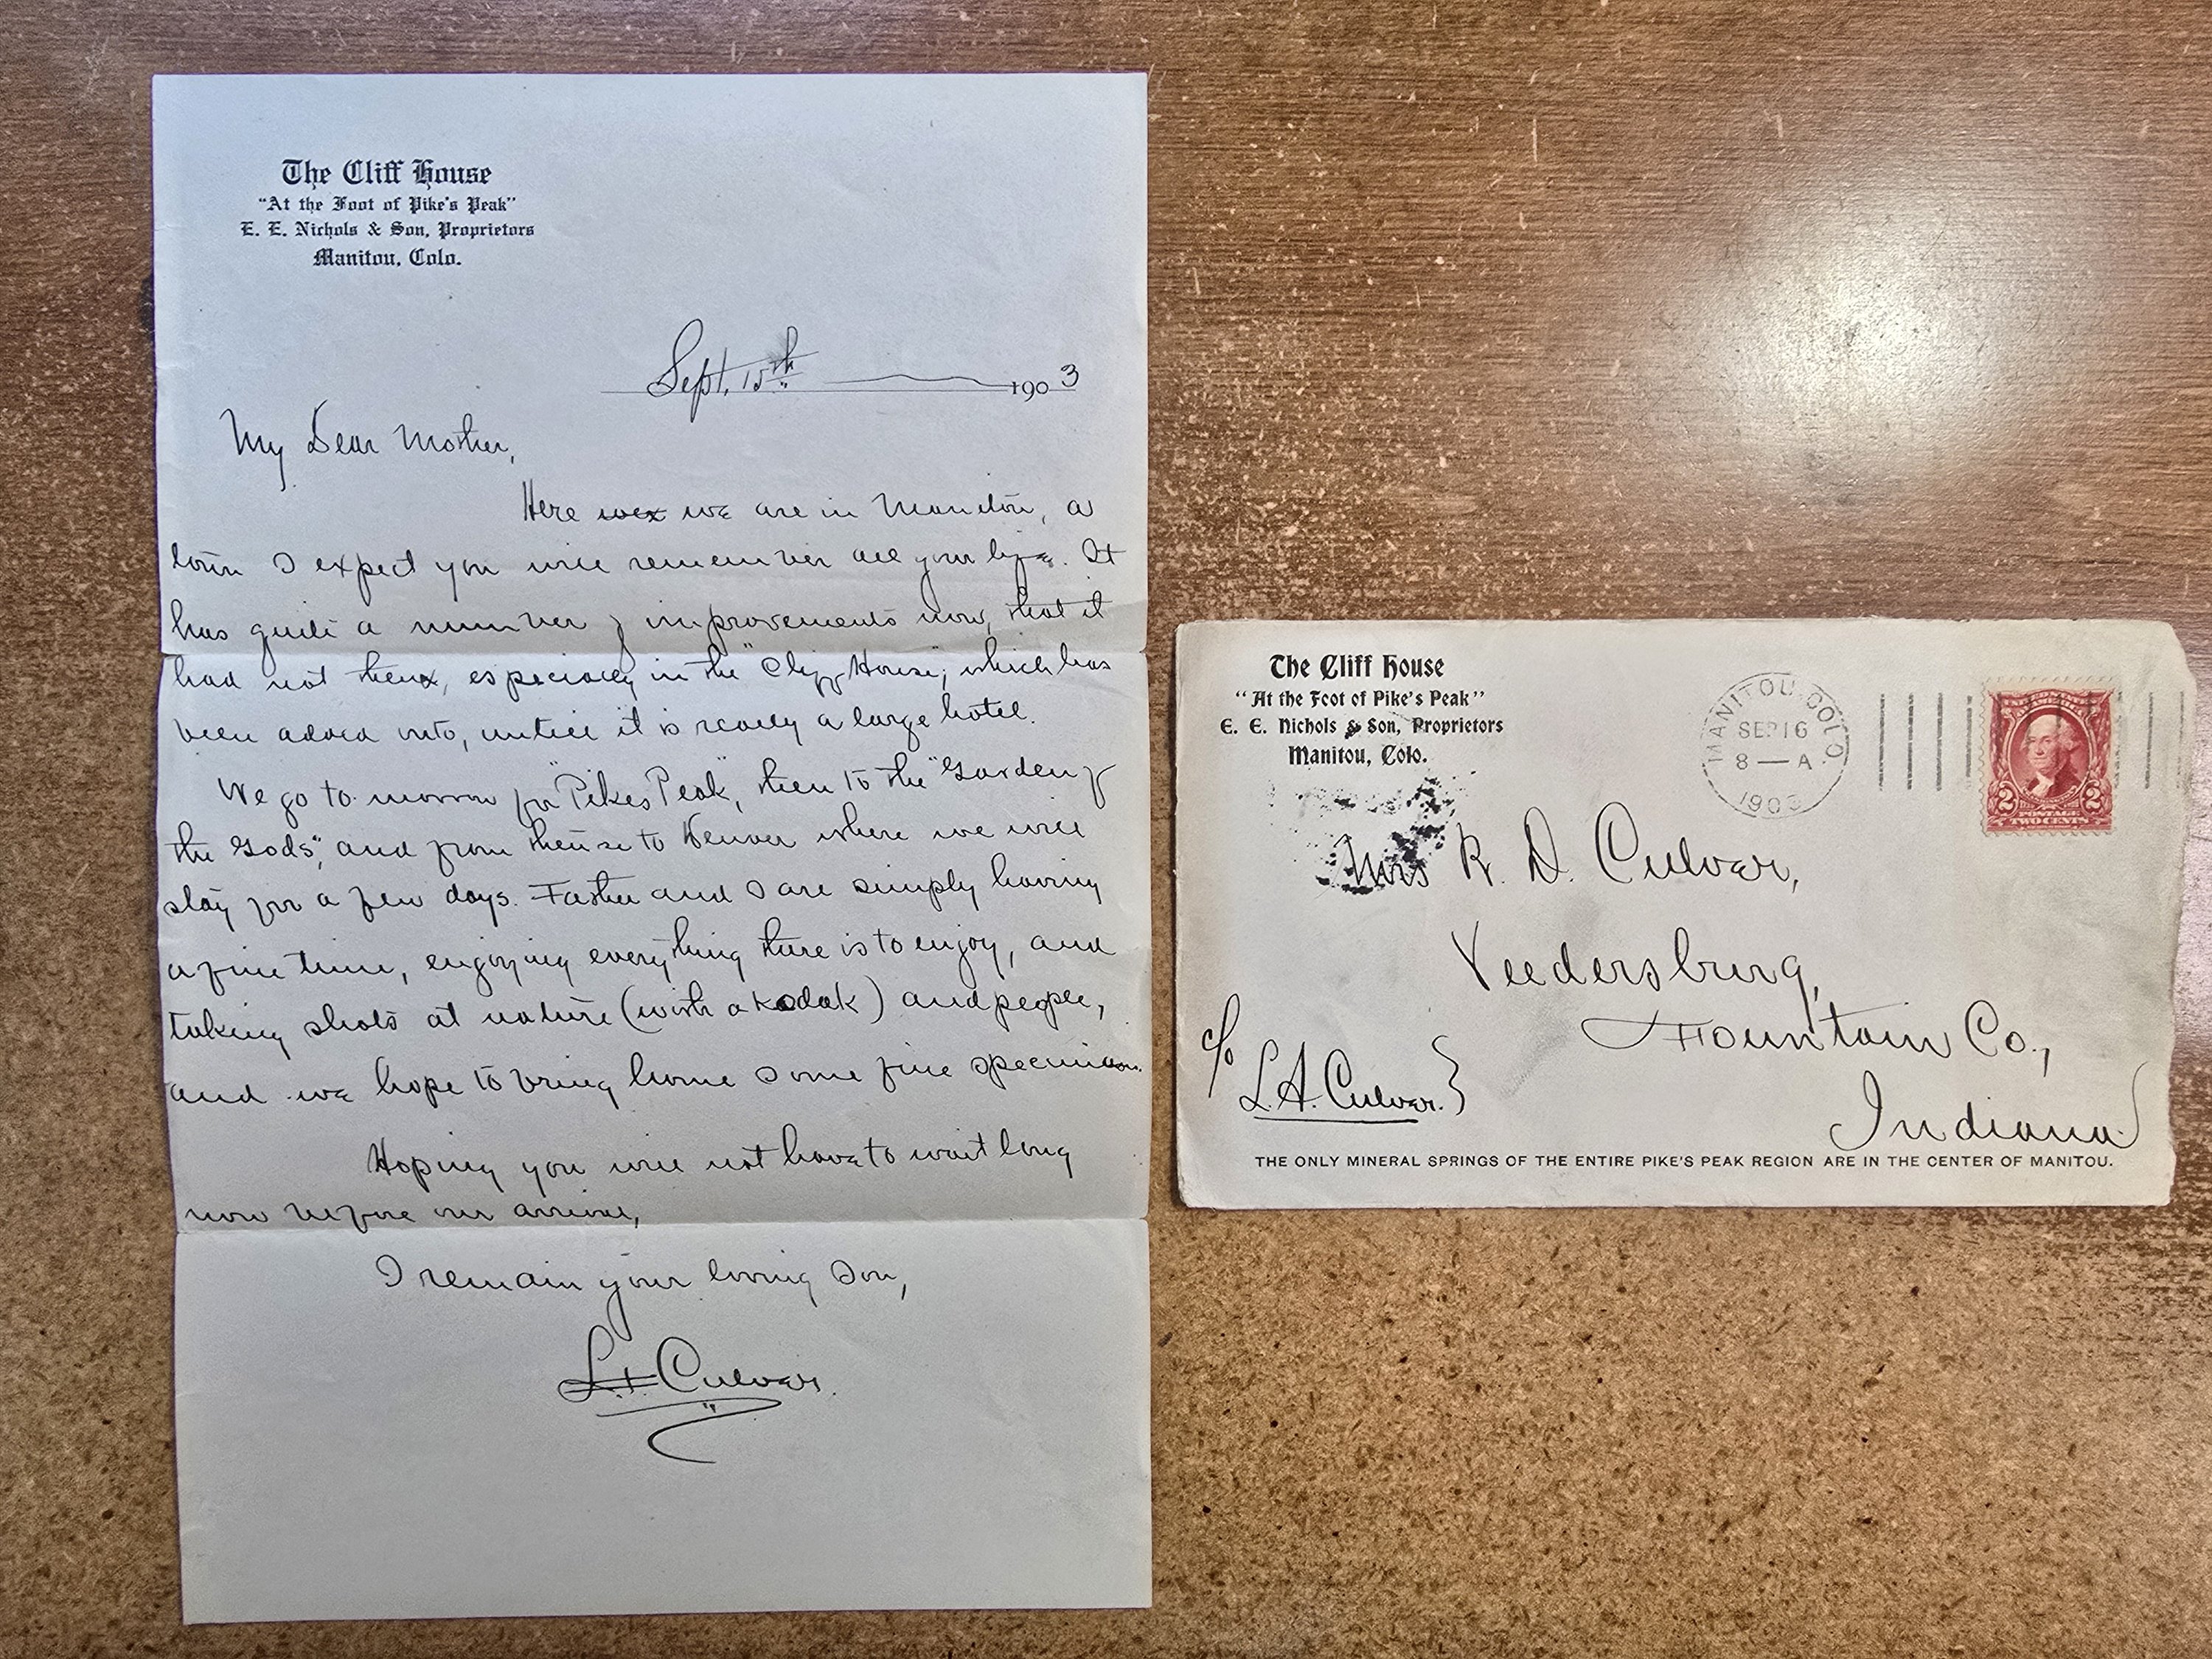 The Cliff House
"At the Foot of Pike's Peak"
E. E. Nichols & Son, Proprietors
Manitou, Colo.
Sept. 15th 1903
My Dear Mother,
Here we are in Manitou, a
town I expect you will remember all your life. It
has quite a number of improvements now, that it
had not then, especially in the "Cliff House", which has
been added onto, untill it is really a large hotel.
We go to-morrow for "Pikes Peak", then to the "Garden of
the Gods", and from thense to Denver where we will
stay for a few days. Father and I are simply having
a fine time, enjoying everything there is to enjoy, and
taking shots at nature (with a kodak) and people,
and we hope to bring home some fine
Hoping you will not have to wait long
now before our arrival,
I remain your loving Son,
Culver.
The Cliff House
"At the Foot of Pike's Peak"
E. E. Nichols & Son, Proprietors
Manitou, Colo.
MANITOU, COLO.
SEP 16
8 — A
1903
2 2
POSTAGE
TWO CENTS
Mrs R. D. Culver,
Veedersburg,
Fountain Co.,
Indiana
c/o
L. A. Culver.
THE ONLY MINERAL SPRINGS OF THE ENTIRE PIKE'S PEAK REGION ARE IN THE CENTER OF MANITOU.